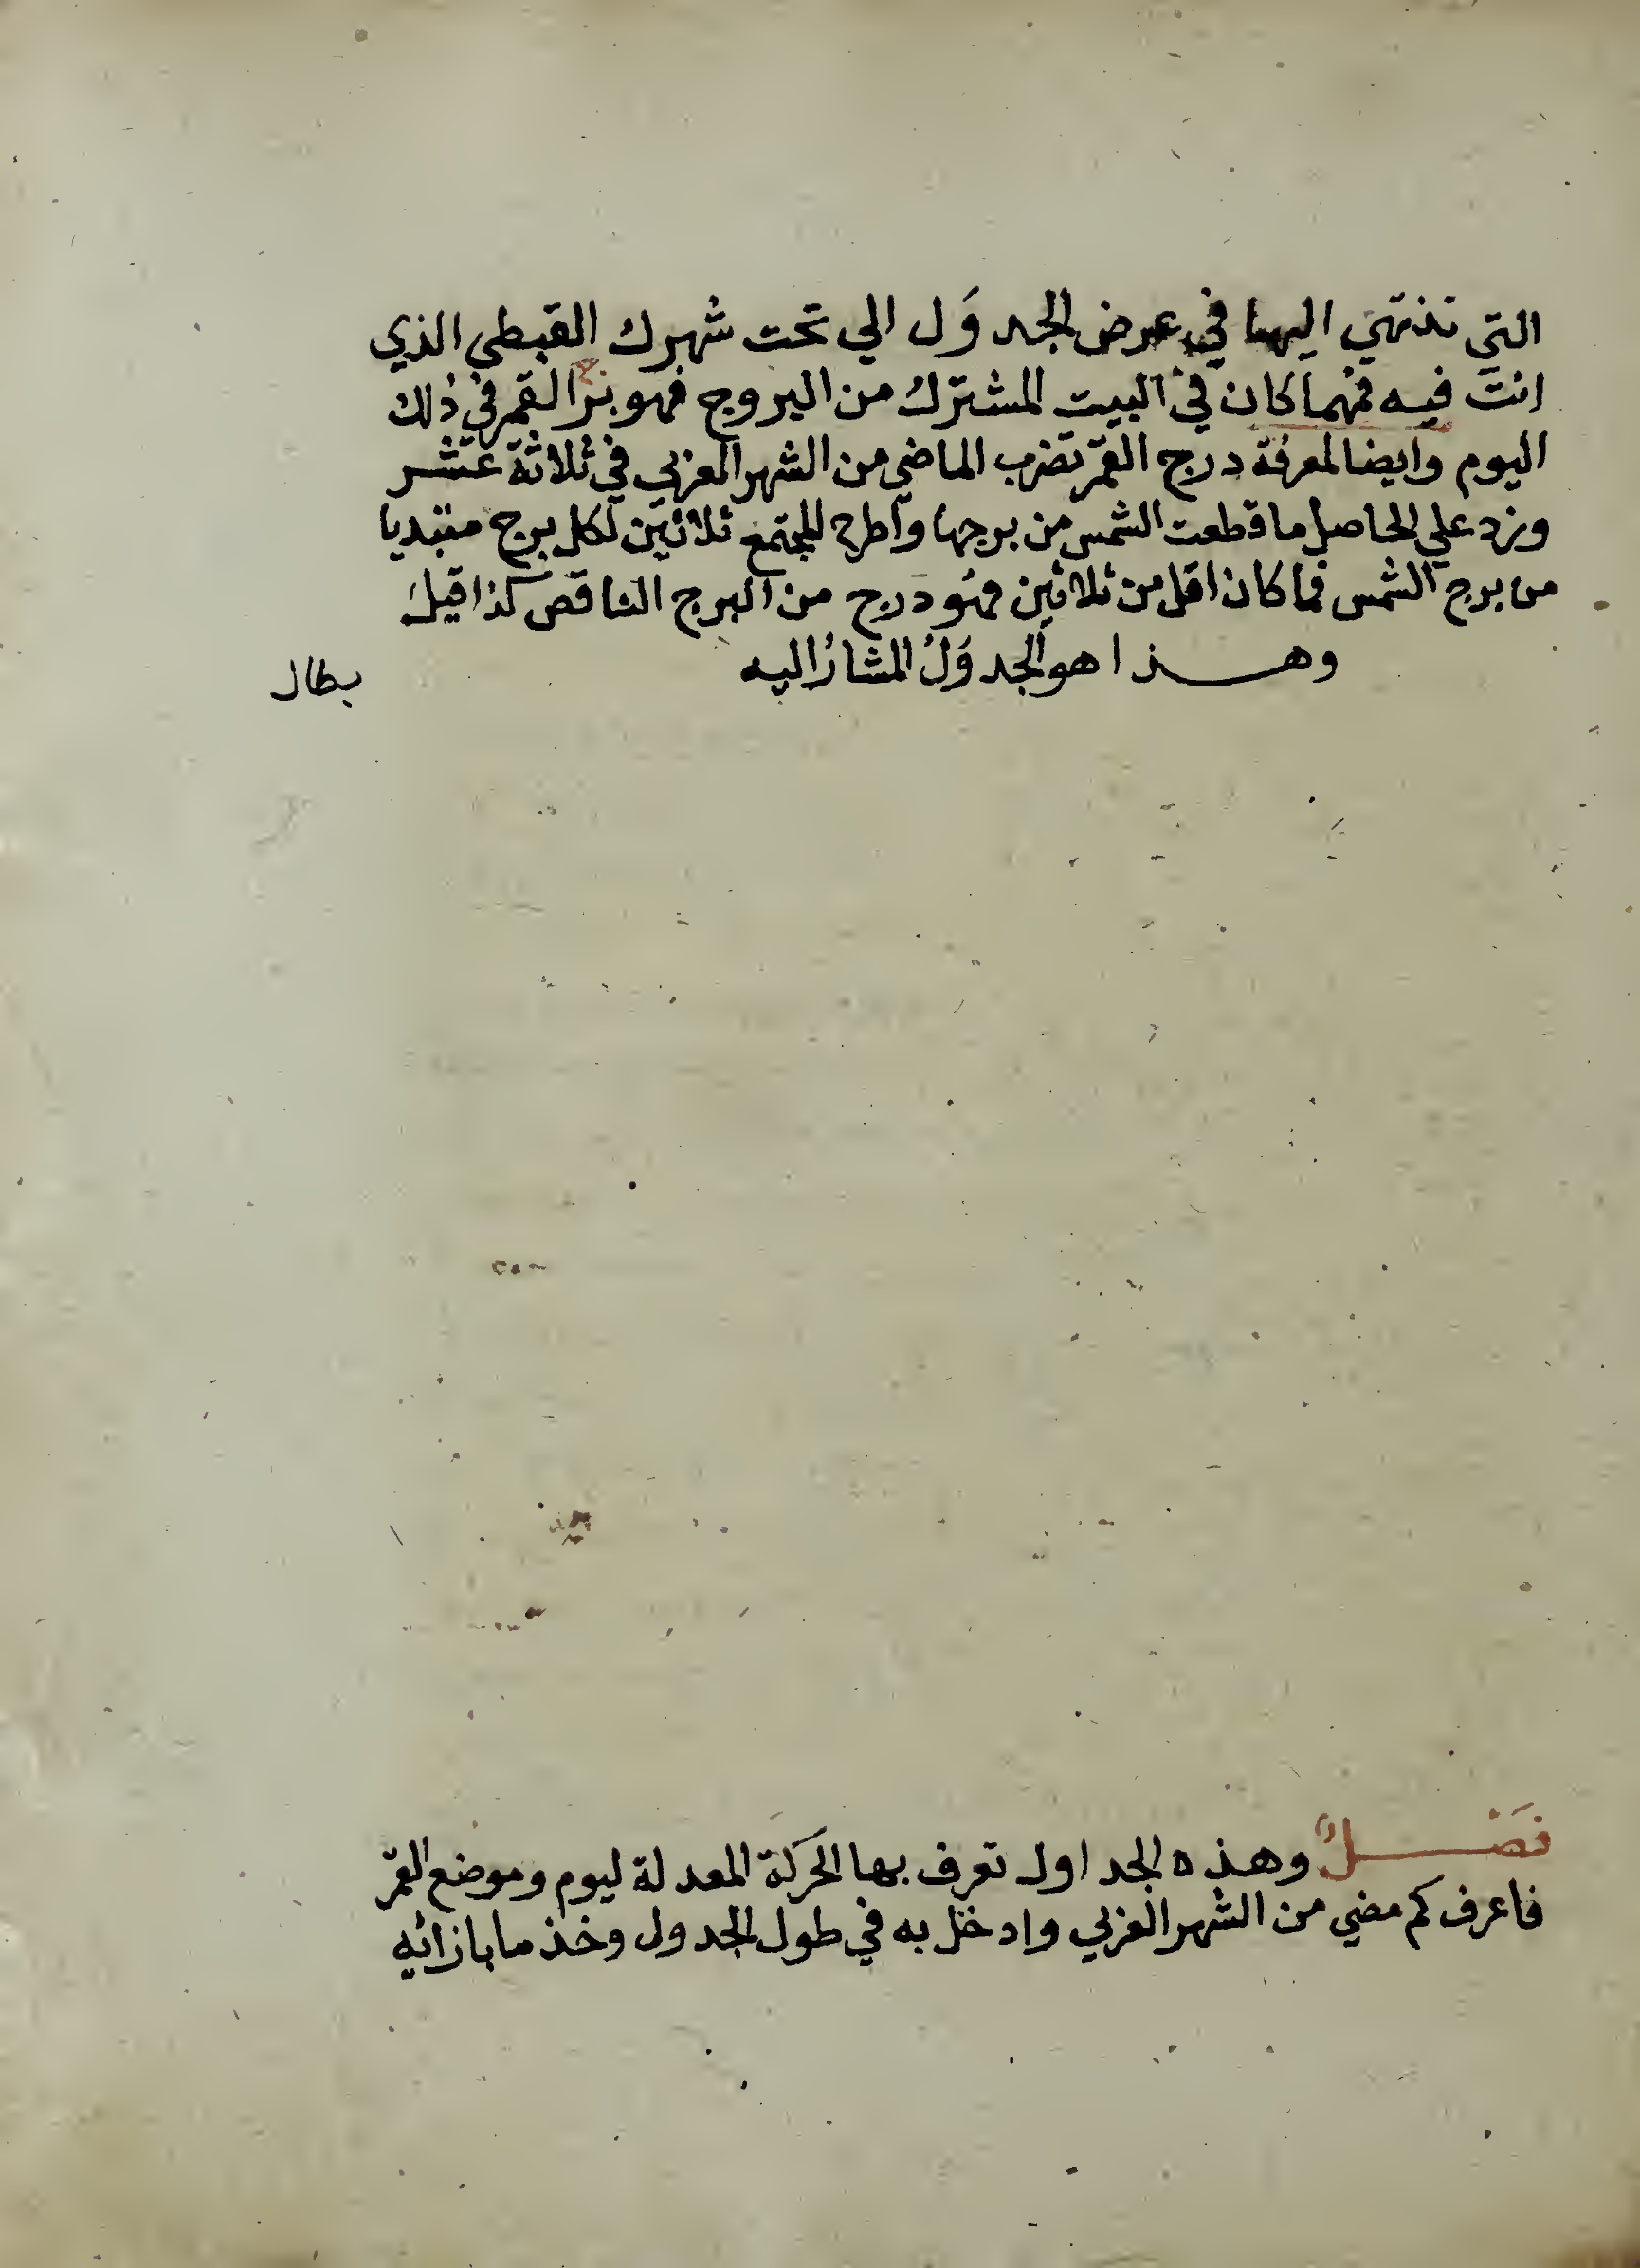 التي تنتهي اليها في عرض الجدوَل الي تحت شهرك القبطي الذي
انتَ فيه فمهما كان في البيت المشترك من البروج فهو برج القمر في ذلك
اليوم وايضا لمعرفة درج القمر تضرب الماضي من الشهر العربي في ثلاثة عشر
وزد علي الحاصل ما قطعت الشمس من برجها واطرح للمجتمع ثلاثين لكل برج مبتديا
من برج الشمس فما كان اقل من ثلاثين فهُو درج من البرج الناقص كذا قيل
وهذا هو الجدوَلُ المشارُ اليه
بطال
فَصْلٌ وهذه الجداول تعرف بها الحَركة المعدلة ليوم وموضع القمر
فاعرف كم مضي من الشهر العربي وادخل به في طول الجدول وخذ ما بازائه